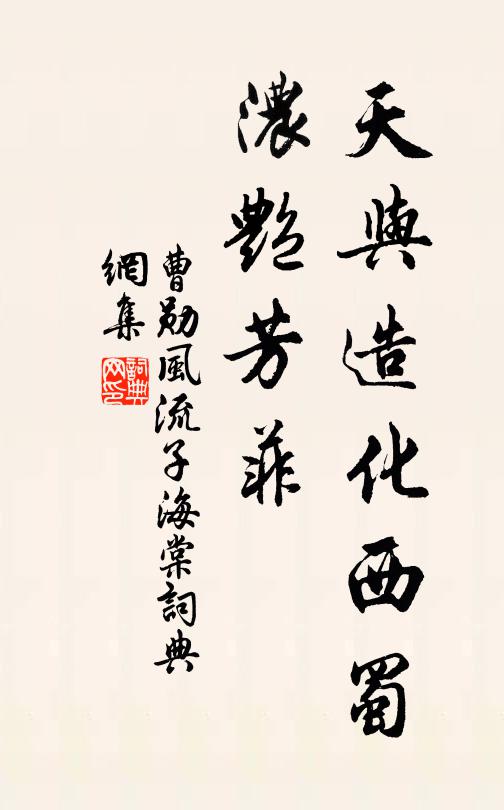 天與造化西蜀
濃艷芳菲
曹勛風流子海棠詞典
網集
詞典
网印